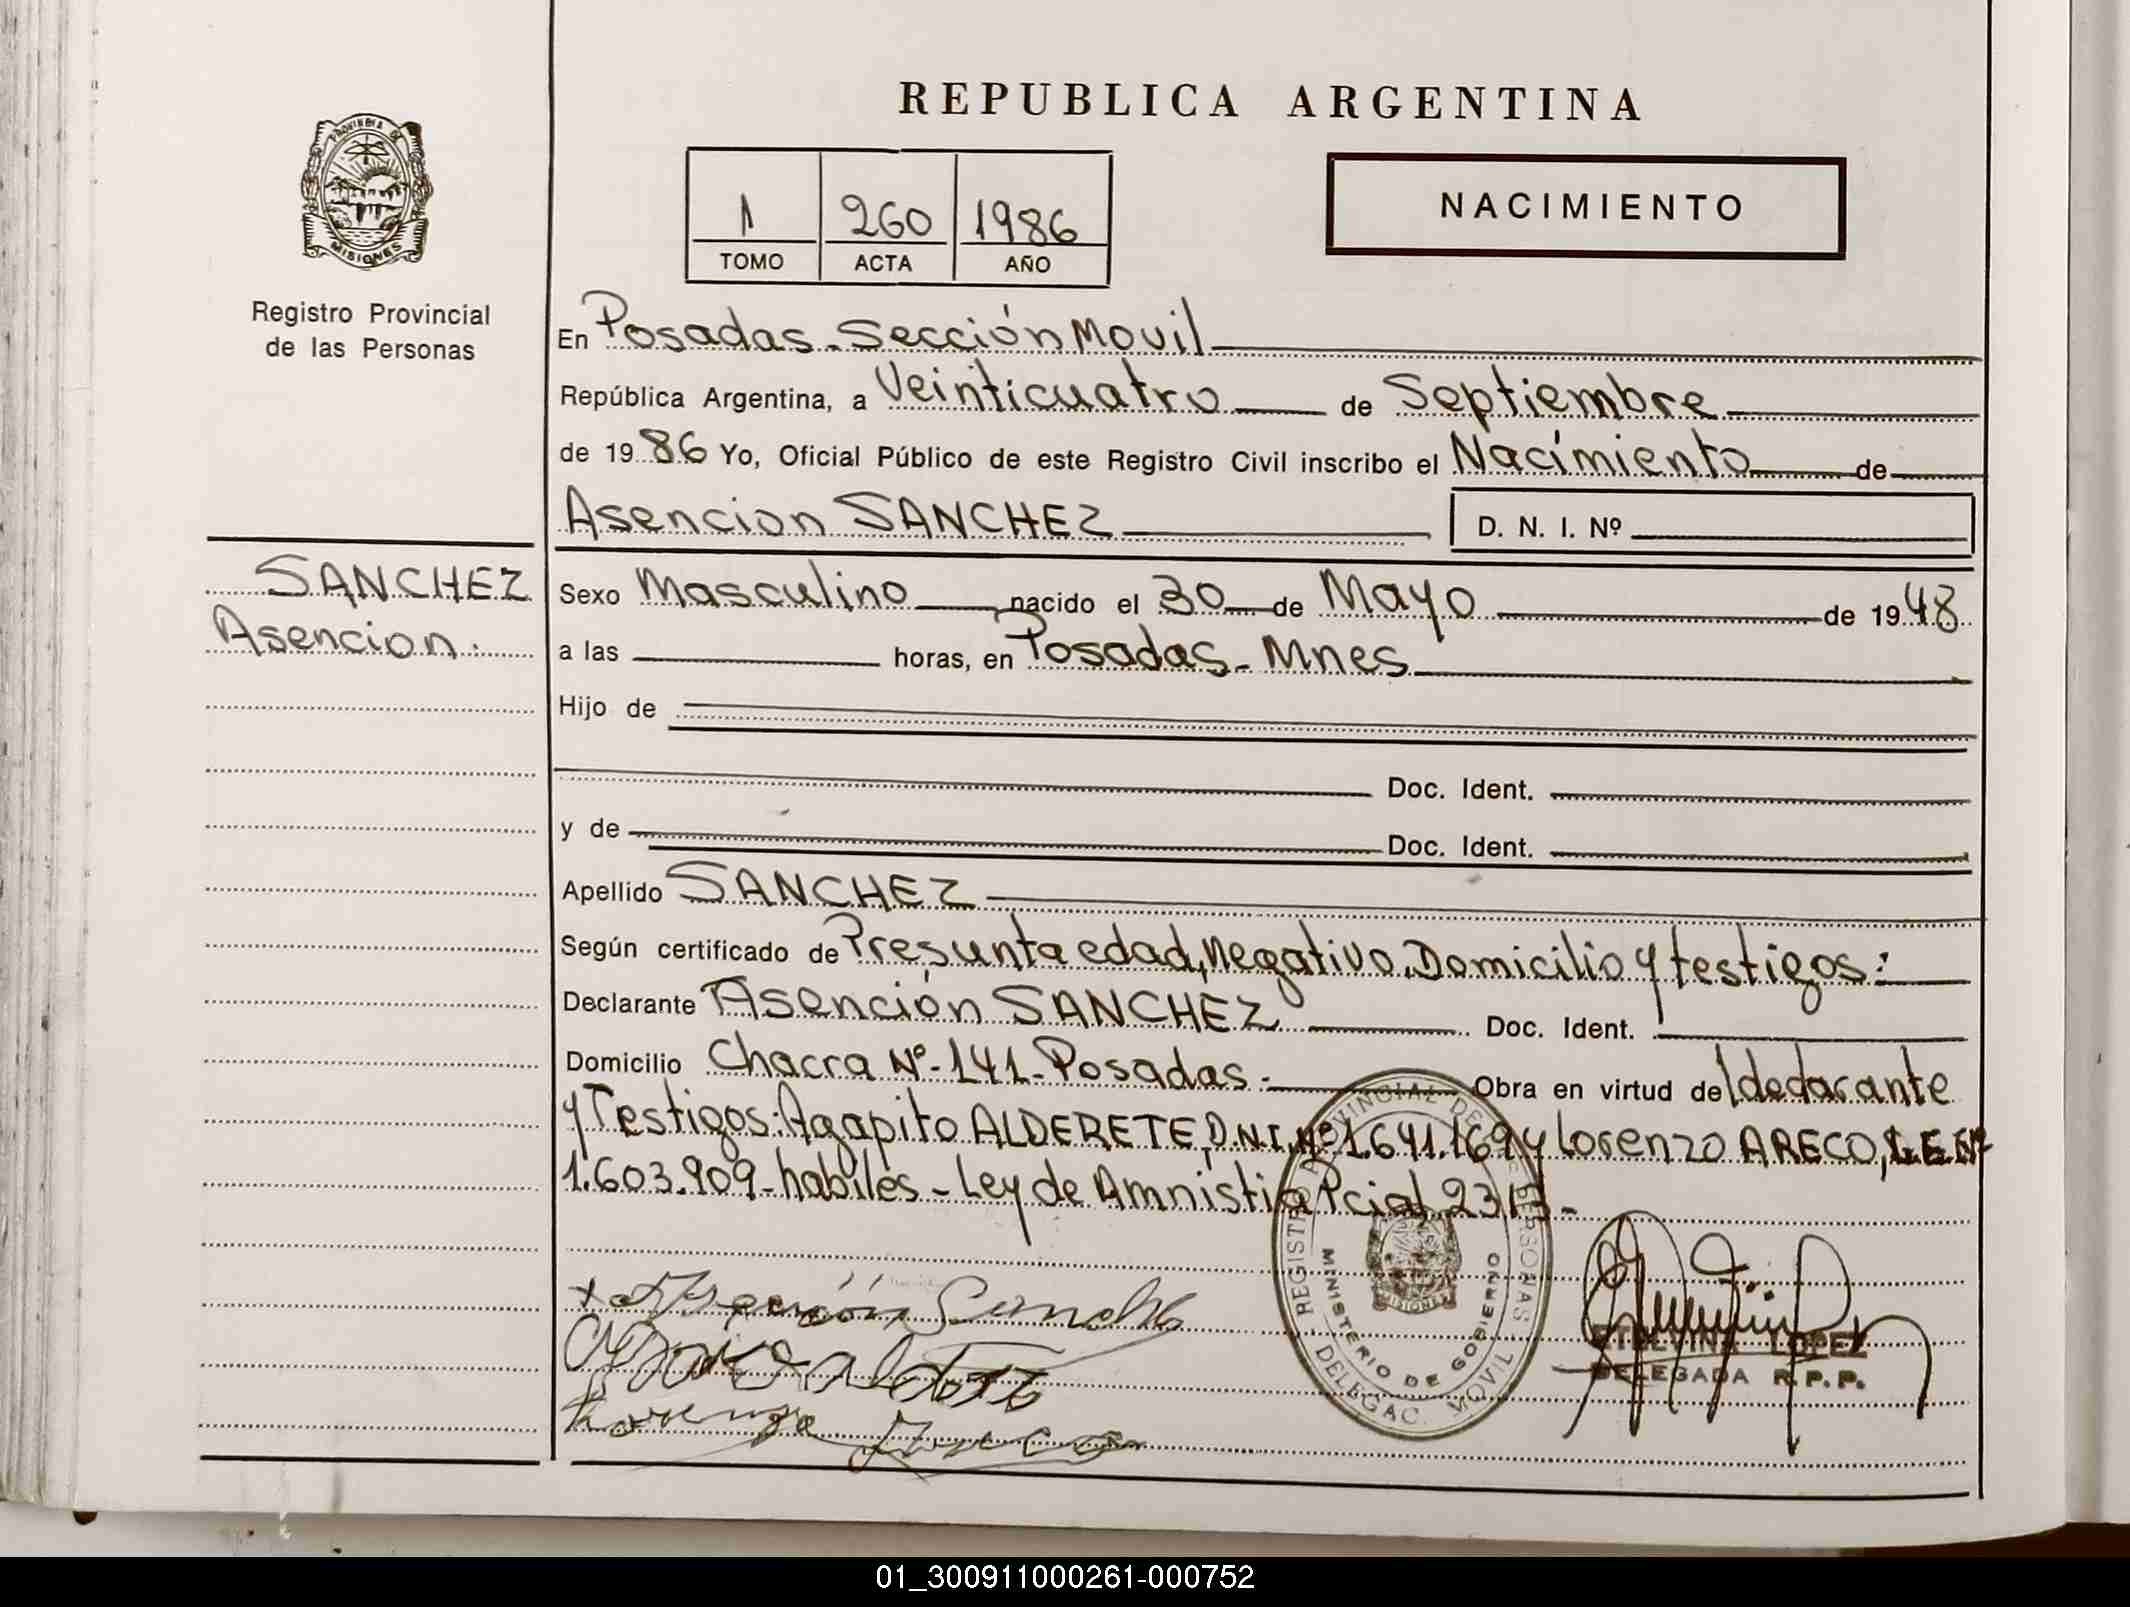 REPUBLICA ARGENTINA
PROVINCIA DE
MISIONES
1 260 1986
TOMO ACTA AÑO
NACIMIENTO
Registro Provincial
de las Personas
En Posadas - Sección Movil
República Argentina, a Veinticuatro de Septiembre
de 1986 Yo, Oficial Público de este Registro Civil inscribo el Nacimiento de
Asencion SANCHEZ D. N. I. Nº
SANCHEZ
Asencion.
Sexo Masculino nacido el 30 de Mayo de 1948
a las horas, en Posadas - Mnes
Hijo de
Doc. Ident.
y de Doc. Ident.
Apellido SANCHEZ
Según certificado de Presunta edad, Negativo, Domicilio y testigos:
Declarante Asención SANCHEZ Doc. Ident.
Domicilio Chacra Nº-141-Posadas.- Obra en virtud del declarante
y Testigos: Agapito ALDERETE, D.N.I. Nº 1.641.169 y Lorenzo ARECO, L.E. Nº
1.603.909 - habiles - Ley de Amnistia Pcial
Asención Sanchez
Lorenzo Areco
REGISTRO PROVINCIAL DE LAS PERSONAS
MINISTERIO DE GOBIERNO
DELEGAC. MOVIL
MISIONES
ETELVINA LOPEZ
DELEGADA R.P.P.
01_300911000261-000752